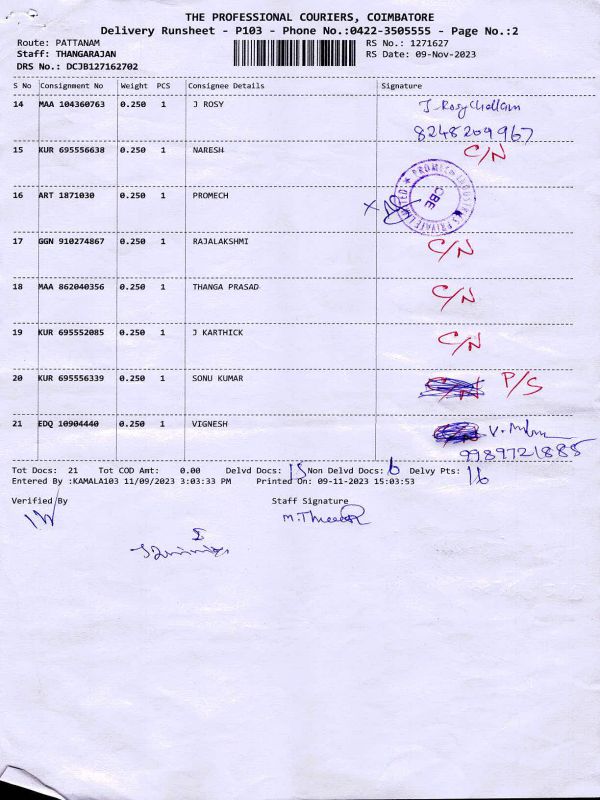 THE PROFESSIONAL COURIERS, COIMBATORE
Delivery Runsheet - P103 - Phone No.:0422-3505555 - Page No.:2
Route: PATTANAM RS No.: 1271627
Staff: THANGARAJAN RS Date: 09-Nov-2023
DRS No.: DCJB127162702
S No Consignment No Weight PCS Consignee Details Signature
14 MAA 104360763 0.250 1 J ROSY J. Rosy Chellam
8248204967
15 KUR 695556638 0.250 1 NARESH C/N
16 ART 1871030 0.250 1 PROMECH PROMECH INDUSTRIES PRIVATE LIMITED CBE
17 GGN 910274867 0.250 1 RAJALAKSHMI C/N
18 MAA 862040356 0.250 1 THANGA PRASAD C/N
19 KUR 695552085 0.250 1 J KARTHICK C/N
20 KUR 695556339 0.250 1 SONU KUMAR P/S
21 EDQ 10904440 0.250 1 VIGNESH
9989721885
Tot Docs: 21 Tot COD Amt: 0.00 Delvd Docs: 15 Non Delvd Docs: 6 Delvy Pts: 16
Entered By :KAMALA103 11/09/2023 3:03:33 PM Printed On: 09-11-2023 15:03:53
Verified By Staff Signature